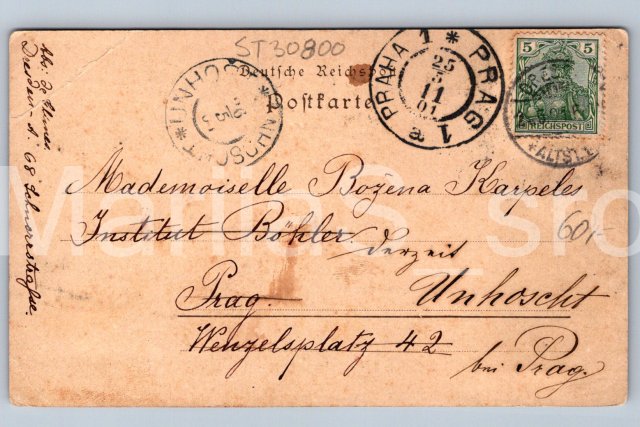 ST30800
Deutsche Reichspost
Postkarte
PRAHA 1 * PRAG 1
25
3
11
01
UNHOSCHT * UNHOŠT *
5 5
REICHSPOST
ALTST.
Mademoiselle Božena Karpeles
Institut Böhler.
derzeit
60,-
Prag. Unhoscht
Wenzelsplatz 42
bei Prag.
Dresden - A. 68